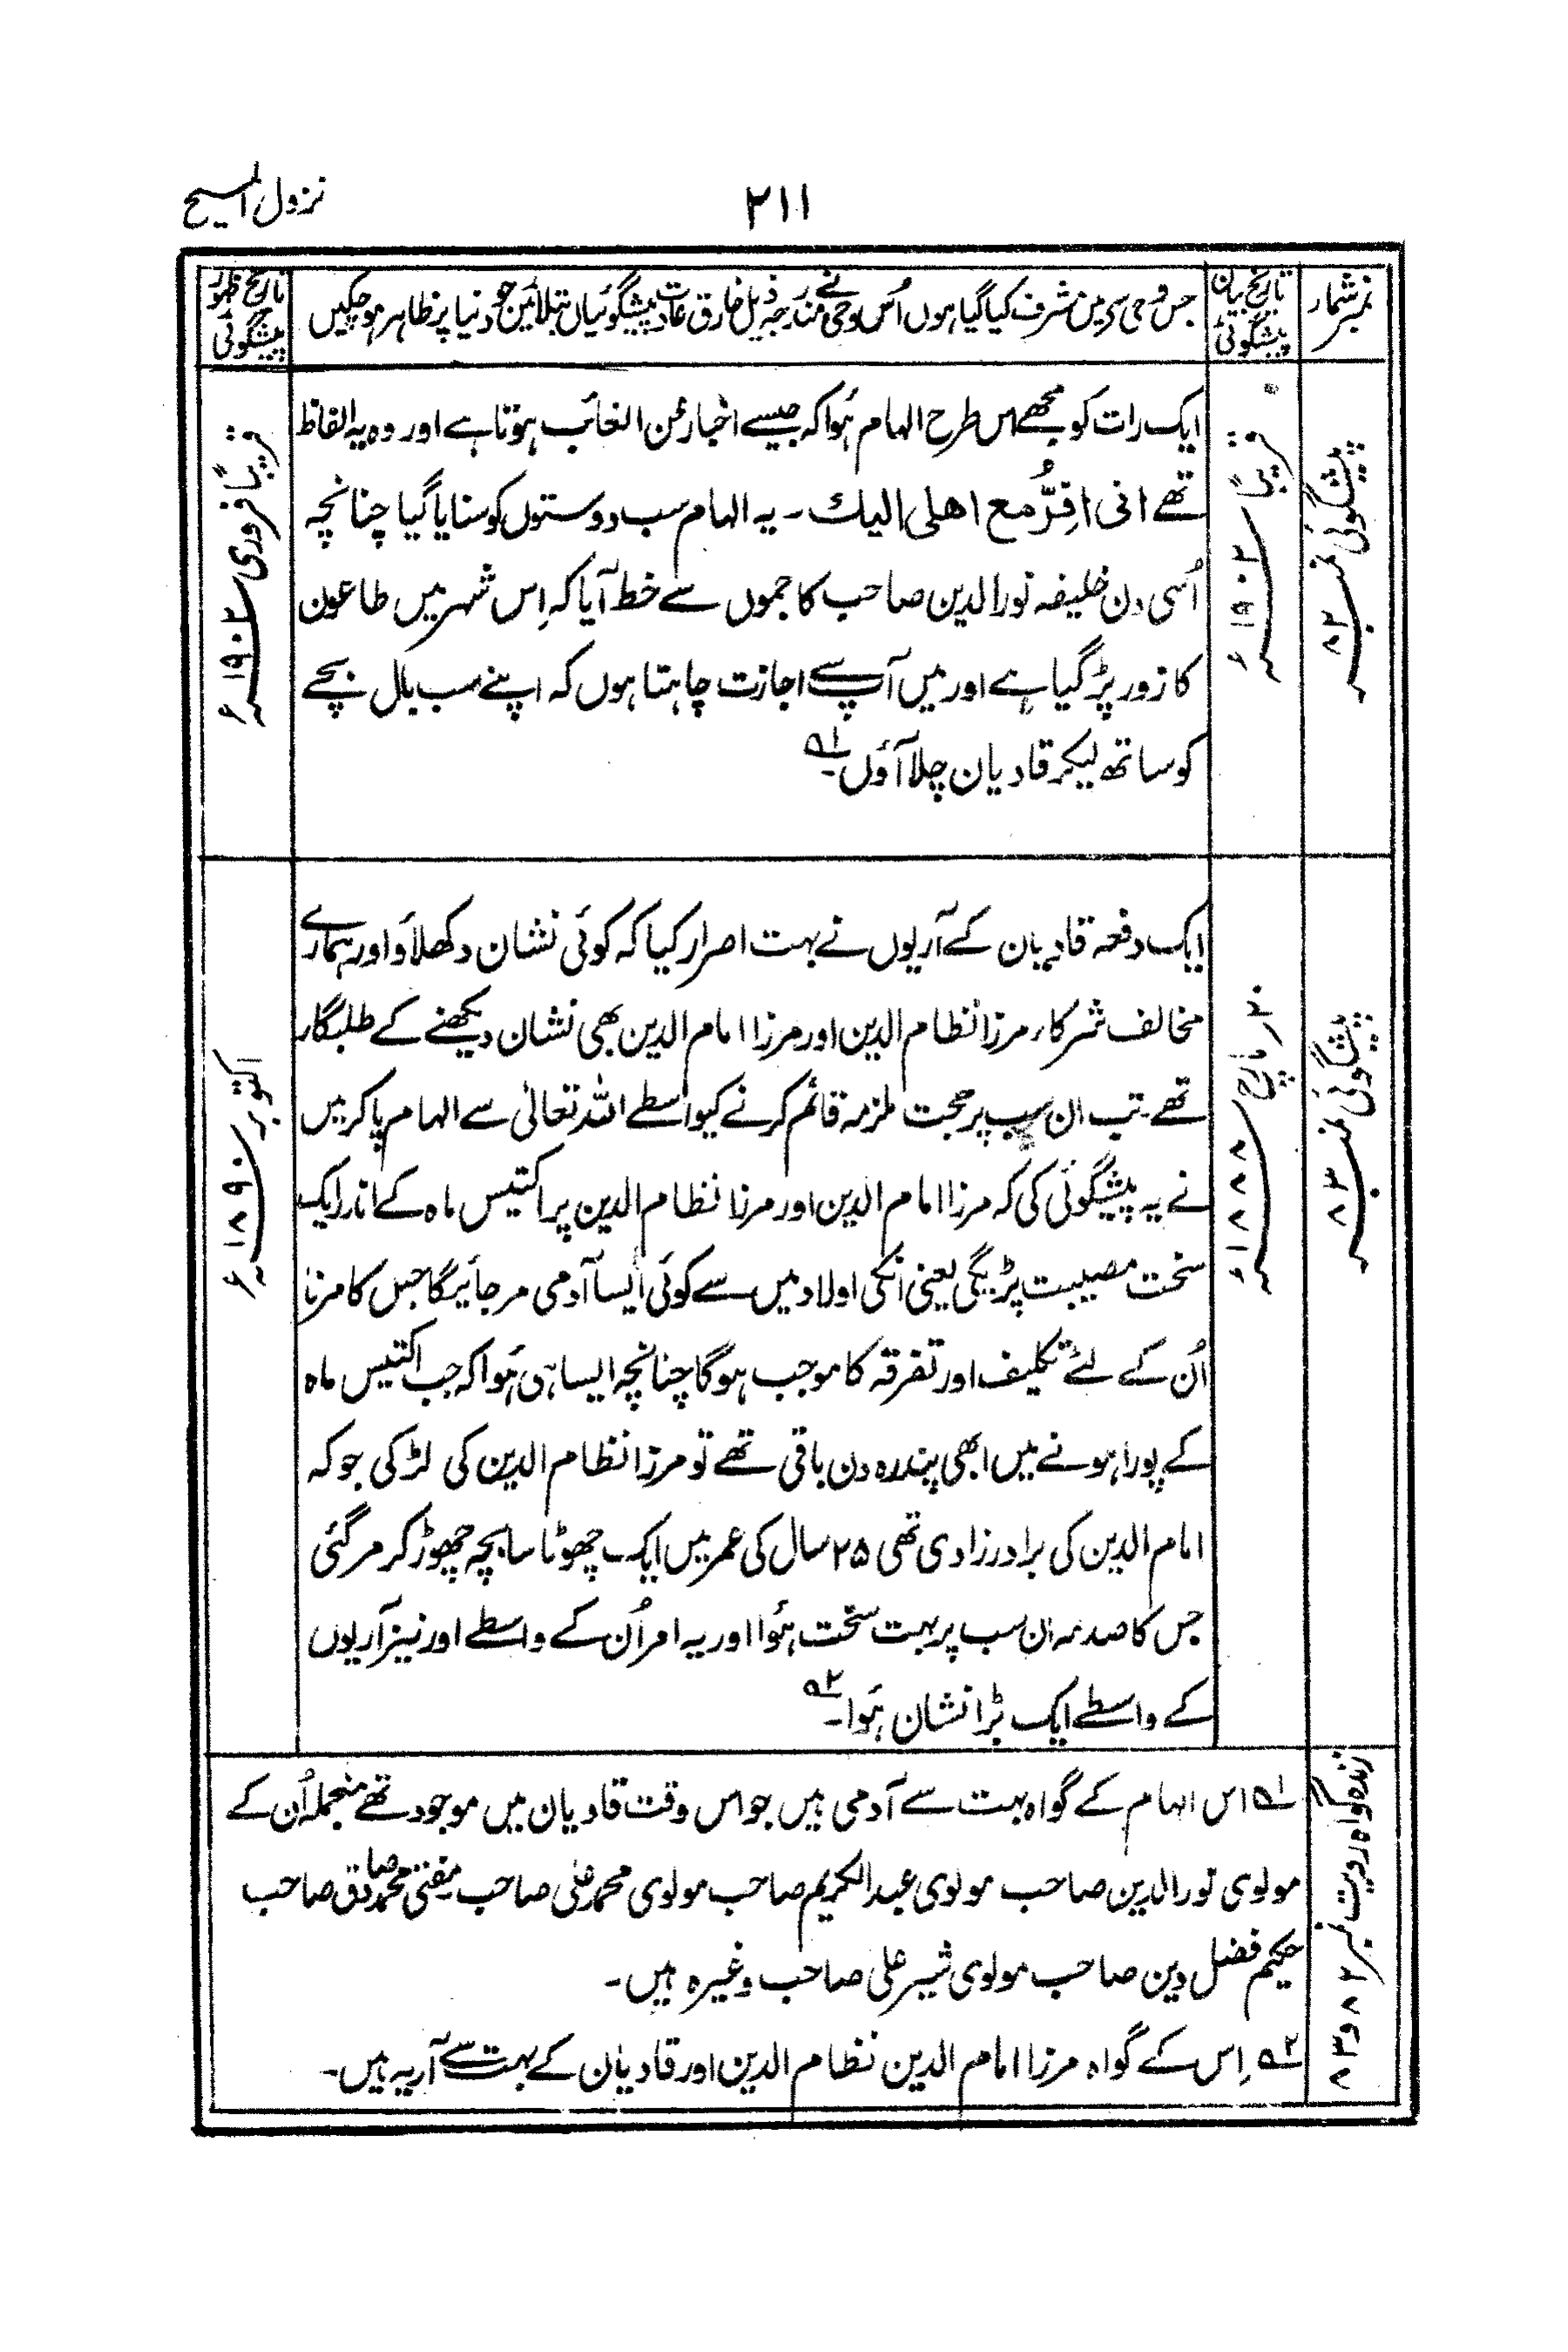 نزول المسیح
۲۱۱
نمبر شمار
تاریخ بیان پیشگوئی
جس وحی سے میں مشرف کیا گیا ہوں اُس وحی نے مندرجہ ذیل خارق عادت پیشگوئیاں بتلائیں جو دنیا پر ظاہر ہو چکیں
تاریخ ظہور پیشگوئی
پیشگوئی نمبر ۸۲
قریباً ۱۹۰۲ء
ایک رات کو مجھے اس طرح الہام ہُوا کہ جیسے اخبار عن الغائب ہوتا ہے اور وہ یہ الفاظ
تھے انی افِرُّ مع اھلی الیك ۔ یہ الہام سب دوستوں کو سنایا گیا چنانچہ
اُسی دن خلیفہ نورالدین صاحب کا جموں سے خط آیا کہ اِس شہر میں طاعون
کا زور پڑ گیا ہے اور میں آپ سے اجازت چاہتا ہوں کہ اپنے سب بال بچے
کو ساتھ لیکر قادیان چلا آؤں۔ ۱؎
قریباً فروری ۱۹۰۲ء
پیشگوئی نمبر ۸۳
مارچ ۱۸۸۸ء
ایک دفعہ قادیان کے آریوں نے بہت اصرار کیا کہ کوئی نشان دکھلاؤ اور ہمارے
مخالف شرکاء مرزا نظام الدین اور مرزا امام الدین بھی نشان دیکھنے کے طلبگار
تھے تب ان سب پر حجت ملزمہ قائم کرنے کیواسطے اللہ تعالیٰ سے الہام پا کر میں
نے یہ پیشگوئی کی کہ مرزا امام الدین اور مرزا نظام الدین پر اکتیس ماہ کے اندر ایک
سخت مصیبت پڑیگی یعنی انکی اولاد میں سے کوئی ایسا آدمی مر جائیگا جس کا مرنا
اُن کے لئے تکلیف اور تفرقہ کا موجب ہوگا چنانچہ ایسا ہی ہُوا کہ جب اکتیس ماہ
کے پورا ہونے میں ابھی پندرہ دن باقی تھے تو مرزا نظام الدین کی لڑکی جو کہ
امام الدین کی برادر زادی تھی ۲۵ سال کی عمر میں ایک چھوٹا سا بچہ چھوڑ کر مر گئی
جس کا صدمہ ان سب پر بہت سخت ہُوا اور یہ امر اُن کے واسطے اور نیز آریوں
کے واسطے ایک بڑا نشان ہُوا۔ ۲؎
اکتوبر ۱۸۹۰ء
زندہ گواہ رویت نمبر ۸۲ و ۸۳
۱؎ اس الہام کے گواہ بہت سے آدمی ہیں جو اس وقت قادیان میں موجود تھے منجملہ اُن کے
مولوی نورالدین صاحب مولوی عبدالکریم صاحب مولوی محمد علی صاحب مفتی محمد صادق صاحب
حکیم فضل دین صاحب مولوی شیر علی صاحب وغیرہ ہیں۔
۲؎ اِس کے گواہ مرزا امام الدین نظام الدین اور قادیان کے بہت سے آریہ ہیں۔